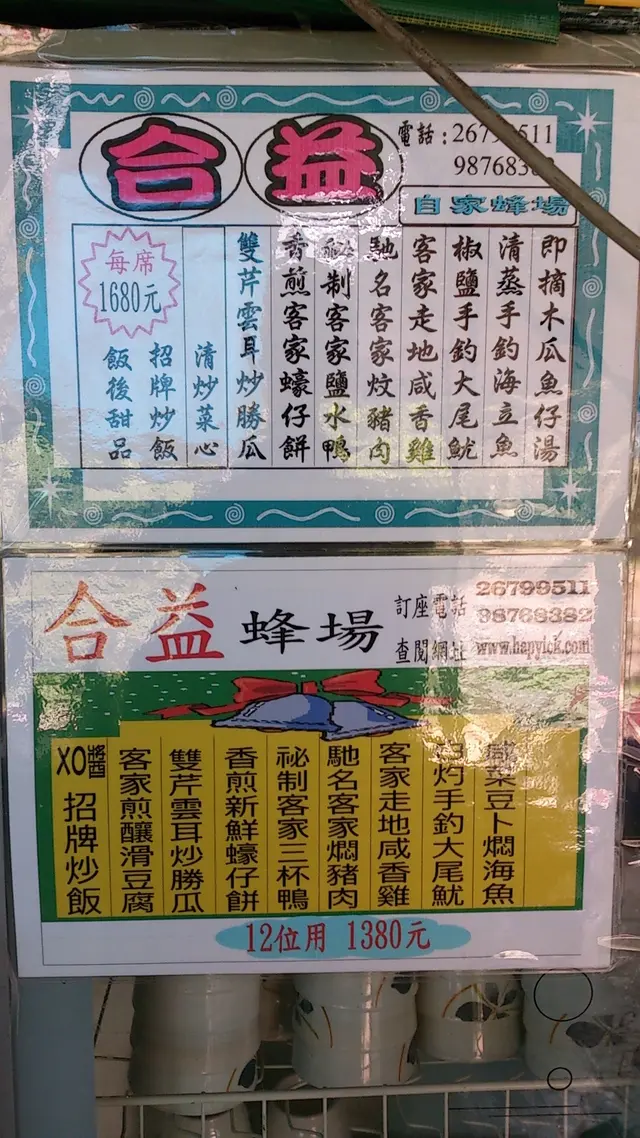 合益
電話:26799511
98768382
自家蜂場
即摘木瓜魚仔湯
清蒸手釣海立魚
椒鹽手釣大尾魷
客家走地咸香雞
馳名客家炆豬肉
秘制客家鹽水鴨
香煎客家蠔仔餅
雙芹雲耳炒勝瓜
清炒菜心
招牌炒飯
飯後甜品
每席
1680元
合益蜂場
訂座電話 26799511
98768382
查閱網址 www.hapyick.com
咸菜豆卜燜海魚
白灼手釣大尾魷
客家走地咸香雞
馳名客家燜豬肉
祕制客家三杯鴨
香煎新鮮蠔仔餅
雙芹雲耳炒勝瓜
客家煎釀滑豆腐
XO醬招牌炒飯
12位用 1380元